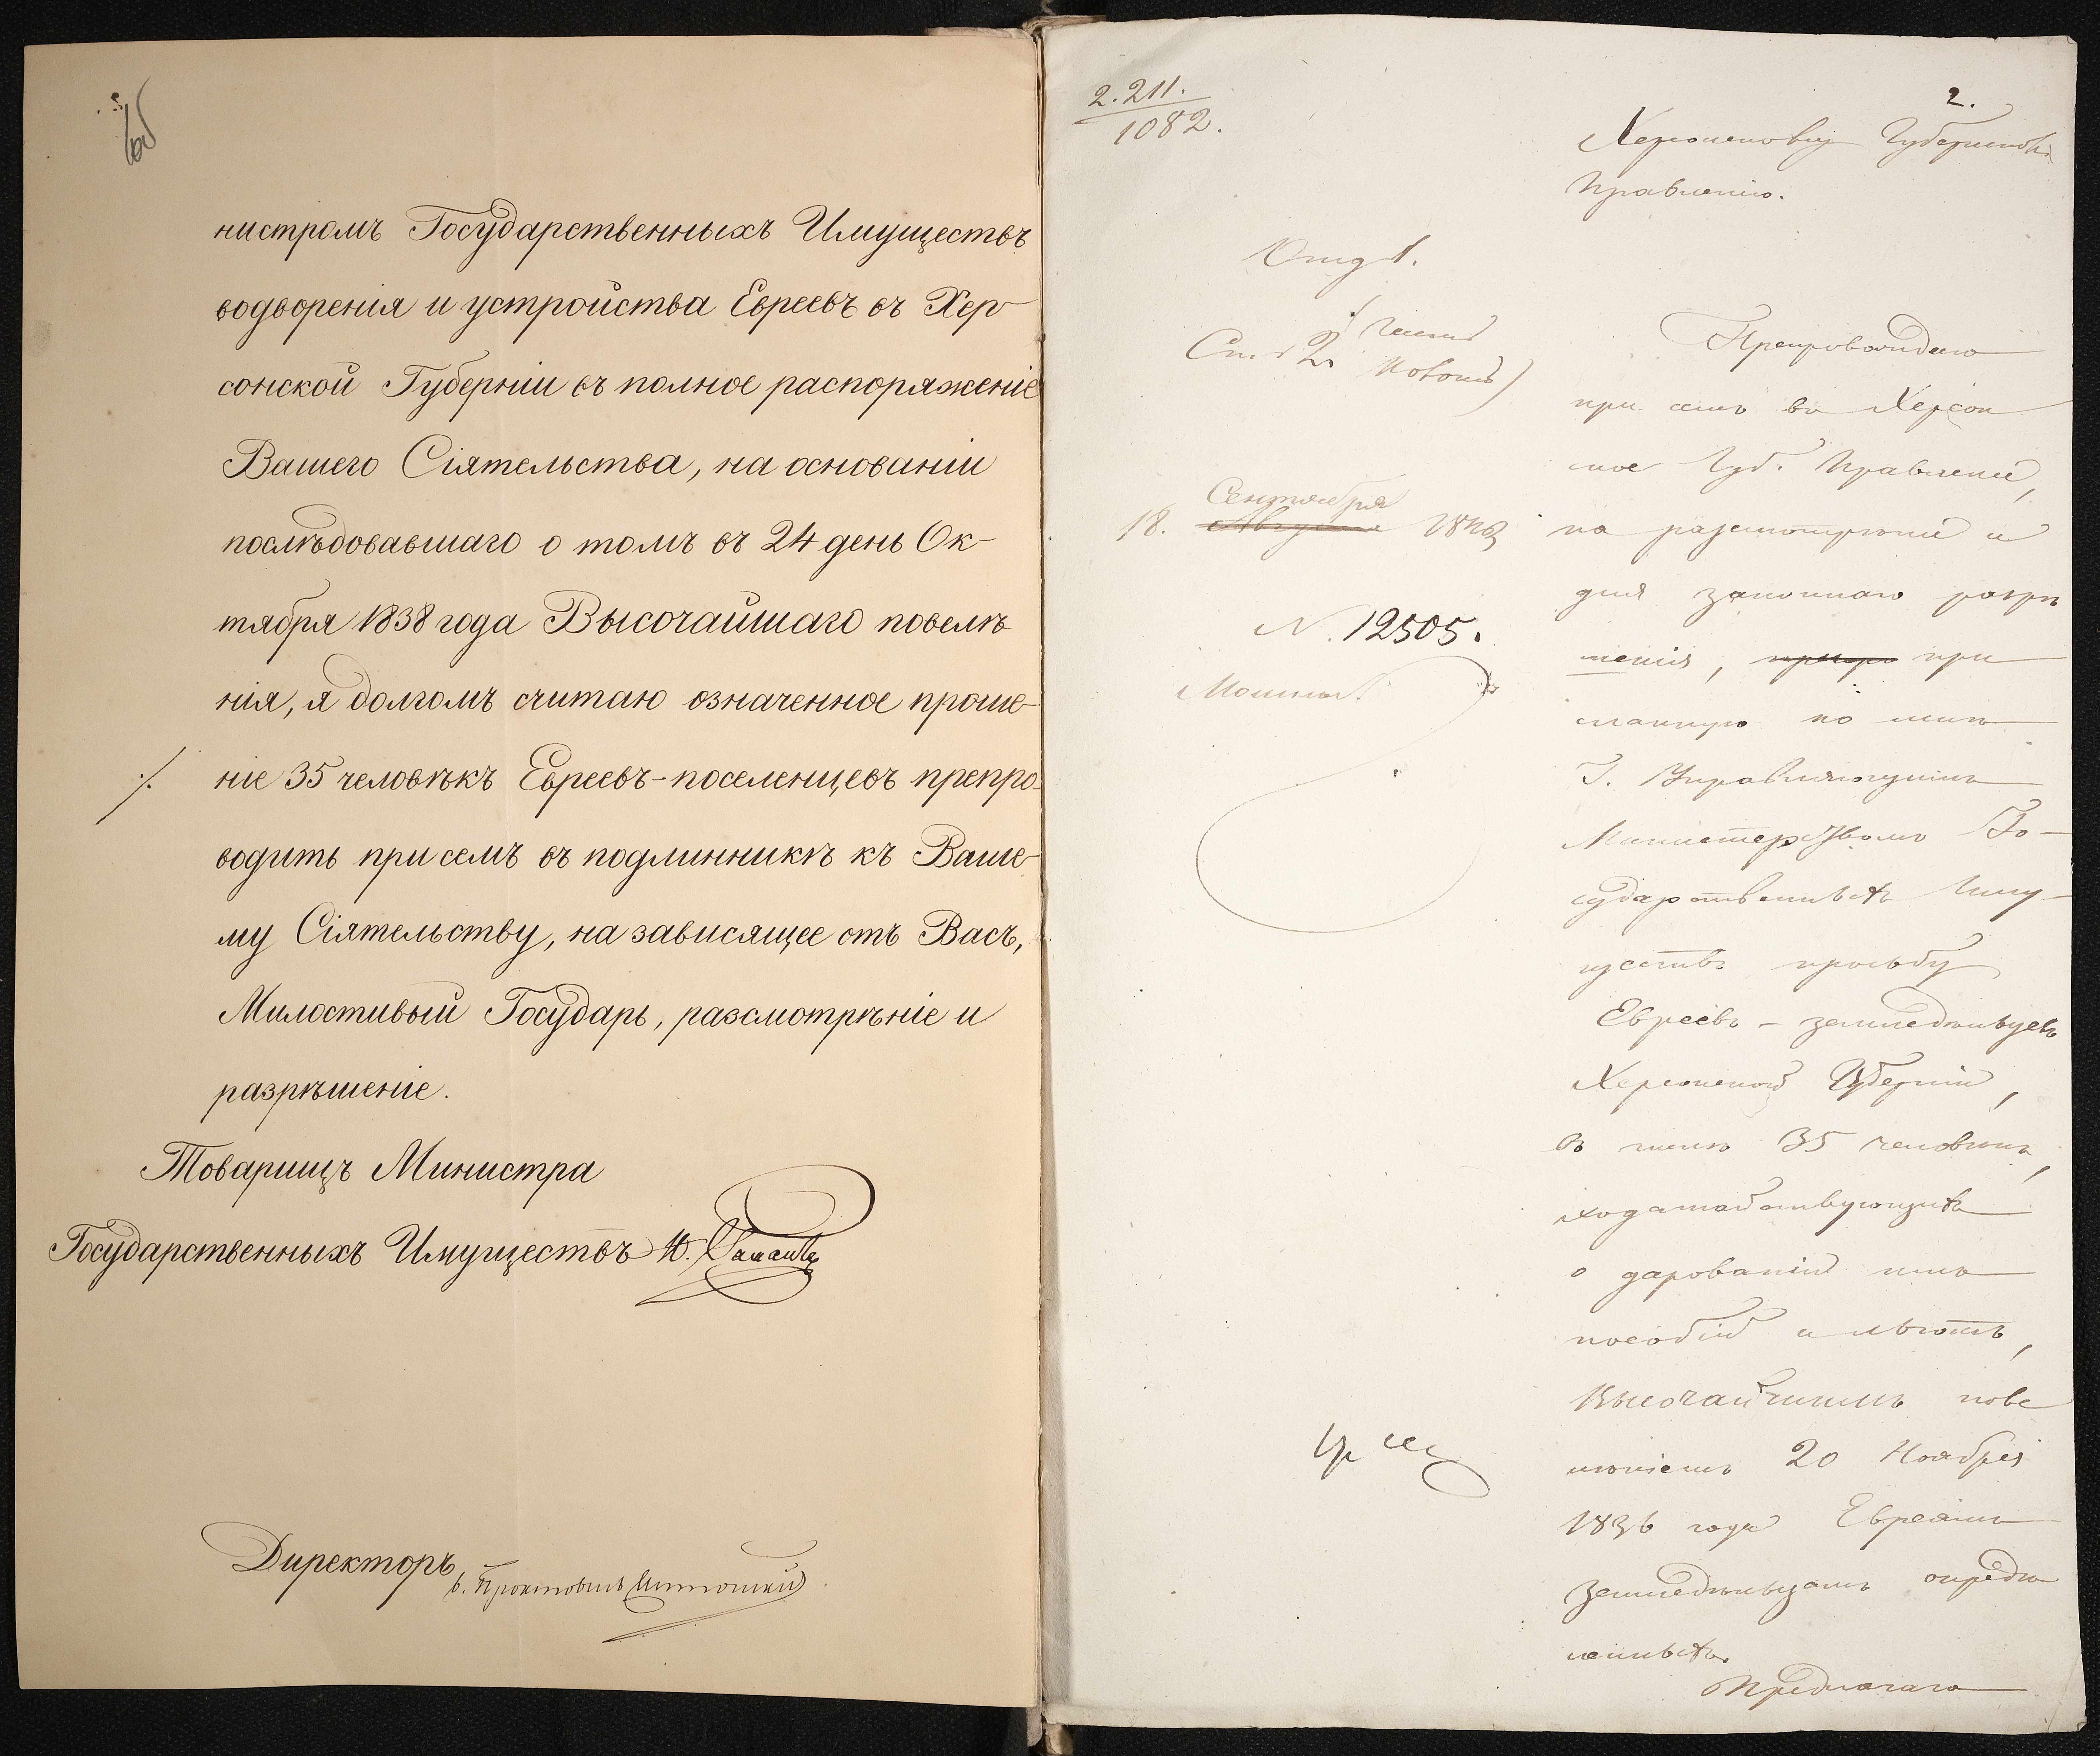 1об
нистромъ Государственныхъ Имуществъ
водворенія и устройства Евреевъ въ Хер-
сонской Губерніи въ полное распоряженіе
Вашего Сіятельства, на основаніи
послѣдовавшаго о томъ въ 24 день Ок-
тября 1838 года Высочайшаго повелѣ-
нія, я долгомъ считаю означенное проше-
ніе 35 человѣкъ Евреевъ-поселенцевъ препро-
водить при семъ въ подлинникѣ къ Ваше-
му Сіятельству, на зависящее отъ Васъ,
Милостивый Государь, разсмотрѣніе и
разрѣшеніе.
Товарищъ Министра
Государственныхъ Имуществъ Н.
Директоръ
2.211.
1082.
2.
Херсонскому Губернском
Правленію.
Отд 1.
Сто 2.
Препровождаю
при семъ въ Херсон
ное Губ. Правленіе,
на разсмотрѣніе и
Сентября
18. Августа
для законнаго разрѣ
N. 12505.
шенія, при
сланную ко мнѣ
Г. Управляющимъ
Министерствомъ Го-
сударственныхъ Иму-
ществъ просьбу
Евреевъ - земледѣльцевъ
Херсонской Губерніи,
въ числѣ 35 человѣкъ,
ходатайствующихъ
о дарованіи имъ
пособій и льготъ,
Высочайшимъ пове
лѣніемъ 20 Ноября
1836 года Евреямъ
земледѣльцамъ опредѣ
ленныхъ.
Предлагаю